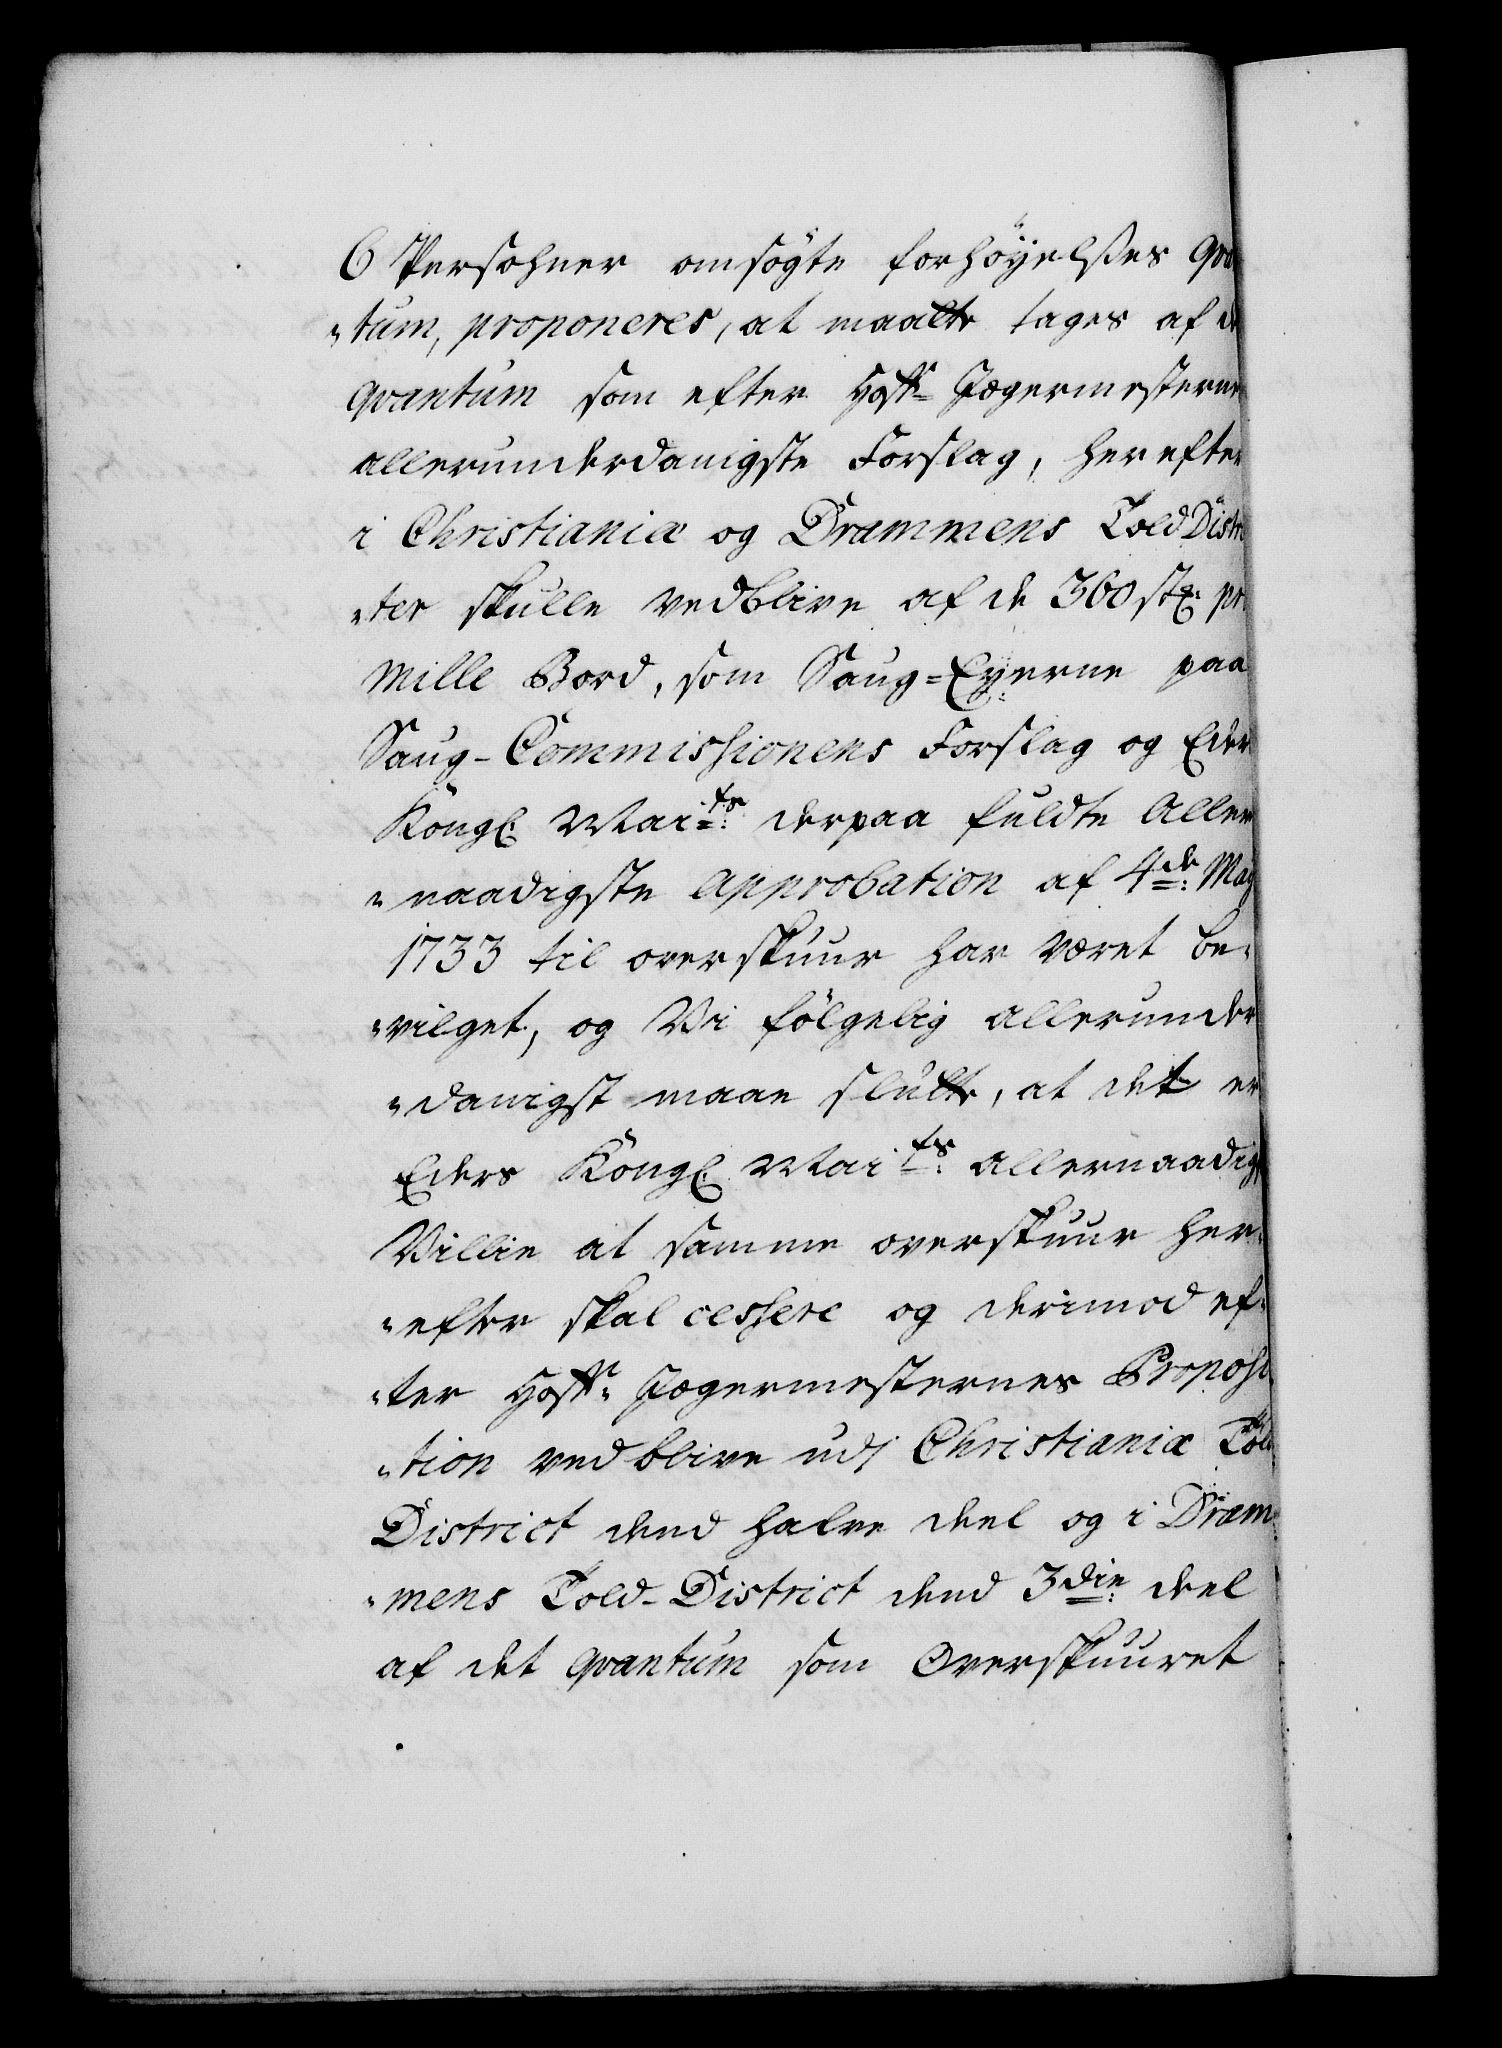 6 Persohner ansögte forhöyelses qva
„tum, proponeres, at maatte tages af de
qvantum som efter Hoff- Jægermesterne
allerunderdanigste Forslag, herefter
i Christianiæ og Drammens Told Distri
„ter skulle vedblive af de 360 stk: pr
Mille Bord, som Saug-Eyerne paa
Saug-Commissionens Forslag og Eders
Kongl: Mai:ts derpaa fuldte Aller
„naadigste Approbation af 4de: May
1733 til overskuur har været be„
„vilget, og Vi fölgelig allerunder
„danigst maae slutte, at det er
Eders Kongl: Mai:ts allernaadigst
Villie at samme overskuur her„
„efter skal cessere og derimod ef„
„ter Hoff- Jægermesternes Proposi
„tion vedblive udj Christianiæ Told
District dend halve deel og i Dram
„mens Told-District dend 3die: deel
af det qvantum som Overskuuret